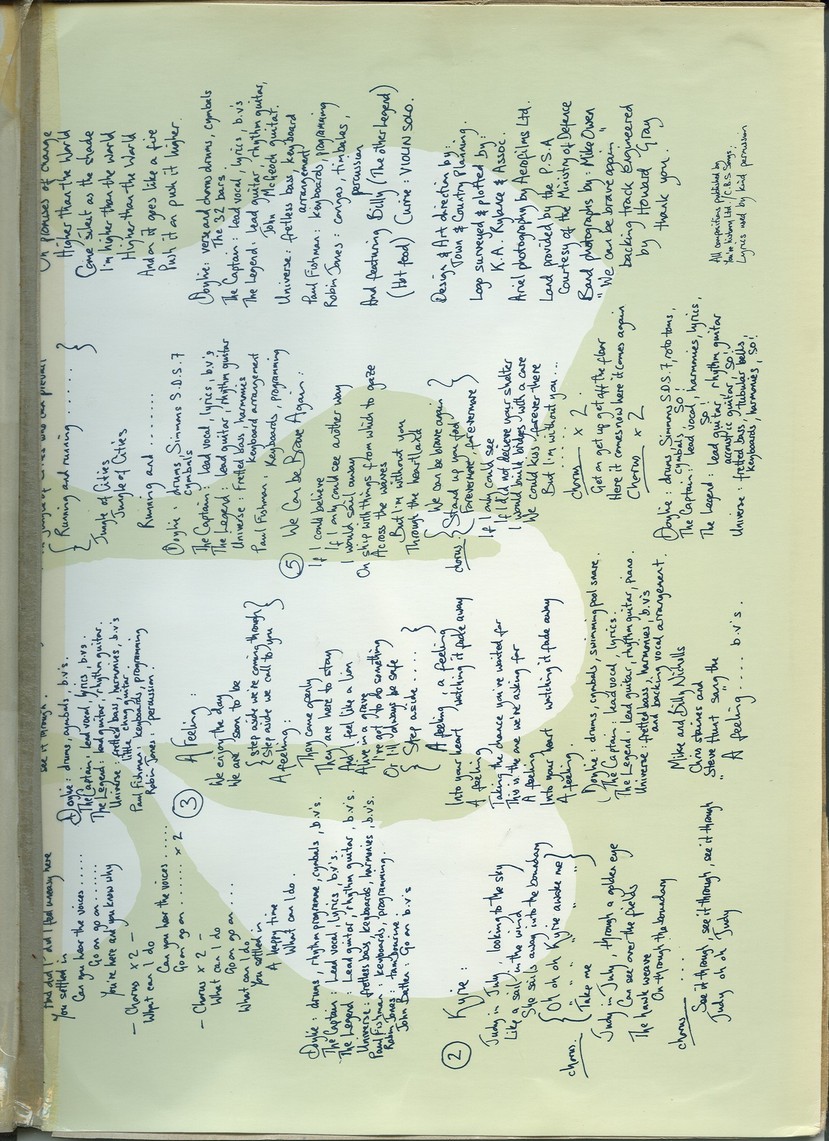 that did I did I feel uneasy here
You settled in
Can you hear the voices .....
Go on go on .......
You're here and you know why
— Chorus x 2 —
What can I do
Can you hear the voices .....
Go on go on ....... x 2
— Chorus x 2 —
What can I do
Go on go on ....
What can I do
You settled in
A happy time
What can I do.
Doyle : drums, rhythm programme, cymbals, b.v's.
The Captain : Lead vocal, lyrics b.v's.
The Legend : Lead guitar, rhythm guitar, b.v's.
Universe : fretless bass, keyboards, harmonies, b.v's.
Paul Fishman : keyboards, programming.
Robin Jones : tambourine.
John Datten : Go on b.v's
② Kyrie :
Judy in July, looking to the sky
Like a sail in the wind
She sails away into the boundary
chorus. { Oh oh oh Kyrie awoke me }
{ Take me " " " " }
Judy in July, through a golden eye
Can see over the fields
The hawk weave
On through the boundary
chorus .....
See it through, see it through, see it through
Judy oh oh Judy
see it through.
Doyle : drums, cymbals, b.v's.
The Captain : lead vocal, lyrics, b.v's.
The Legend : lead guitar, rhythm guitar,
little chang guitar.
Universe : fretless bass, harmonies, b.v's
Paul Fishman : keyboards, programming
Robin Jones : percussion.
③ A Feeling :
We enjoy the day
We are soon to be
{ Step aside we're coming though }
{ Step aside we call to you }
A feeling :
They come openly
They are here to stay
And I feel like a lion
Alive in a grave
I've got to do something
Or I'll always be safe
{ Step aside ..... }
A feeling, a feeling
Into your heart watching it fade away
A feeling
Taking the chance you've waited for
This is the one we're asking for
A feeling
Into your heart watching it fade away
A feeling.
Doyle : drums, cymbals, swimming pool snare.
The Captain : lead vocal, lyrics.
The Legend : lead guitar, rhythm guitar, piano.
Universe : fretted bass, harmonies, b.v's
and backing vocal arrangement.
Mike and Billy Nicholls
Chris Staines and
Steve Hunt sang the
" A feeling .... " b.v's.
{ Running and running ...... }
Jungle of Cities
Jungle of Cities
Running and ........
Doyle : drums Simmons S.D.S.7
cymbals
The Captain : lead vocal, lyrics, b.v's
The Legend : lead guitar, rhythm guitar
Universe : fretted bass, harmonies
keyboard arrangement
Paul Fishman : Keyboards, programming
⑤ We Can Be Brave Again :
If I could believe
If I only could see another way
I would sail away
On ship with things from which to gaze
Across the waves
But I'm without you
Through the heartland
chorus { We can be brave again }
{ Stand up you fool }
{ Forevermore, forevermore }
If I only could see
If I did not believe your shelter
I would build bridges with a care
We could kiss forever there
But I'm without you...
chorus x 2.
Get on get up get off the floor
Here it comes now here it comes again
Chorus x 2
Doyle : drums, Simmons S.D.S 7, roto toms,
cymbals, So!
The Captain : lead vocal, harmonies, lyrics,
So!
The Legend : lead guitar, rhythm guitar
acoustic guitar, So!
Universe : fretted bass, tubular bells,
Keyboards, harmonies, So!
On promises of change
Higher than the World
Come silent as the shade
I'm higher than the world
Higher than the World
And on it goes like a fire
Push it on push it higher.
Doyle : verse and chorus drums, cymbals
The 32 bars.
The Captain : lead vocal, lyrics, b.v's
The Legend : lead guitar, rhythm guitar,
John McGeoch guitar.
Universe : fretless bass, keyboard
arrangement
Paul Fishman : keyboards, programming
Robin Jones : congas, timbales,
percussion
And featuring Billy (The other Legend)
(Hot food) Currie : VIOLIN SOLO.
Design & Art direction by :
Town & Country Planning.
Logo surveyed & plotted by :
K.A. Rylance & Assoc.
Ariel photography by Aerofilms Ltd.
Land provided by the P.S.A
Courtesy of the Ministry of Defence
Band photographs by : Mike Owen
" We can be brave again "
backing track Engineered
by Howard Gray
thank you.
All compositions published by
Ltd. / C.B.S Songs.
Lyrics used by kind permission